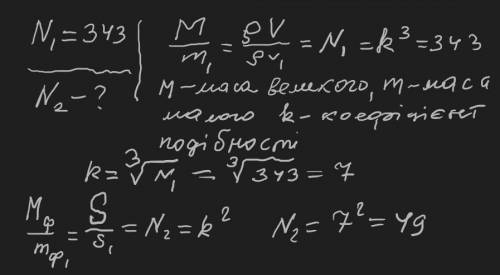 N₁ = 343
N₂ - ?
M/m₁ = ρV/ρv₁ = N₁ = k³ = 343
M - маса великого, m - маса
малого k - коефіцієнт
подібності
k = ∛N₁ = ∛343 = 7
Mф/mф₁ = S/s₁ = N₂ = k²   N₂ = 7² = 49